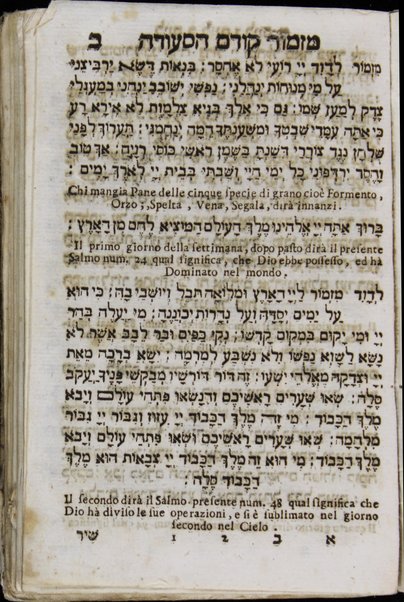 מזמור קודם הסעודה ב
מִזְמוֹר לְדָוִד יְיָ רוֹעִי לֹא אֶחְסָר: בִּנְאוֹת דֶּשֶׁא יַרְבִּיצֵנִי
עַל מֵי מְנוּחוֹת יְנַהֲלֵנִי: נַפְשִׁי יְשׁוֹבֵב יַנְחֵנִי בְמַעְגְּלֵי
צֶדֶק לְמַעַן שְׁמוֹ: גַּם כִּי אֵלֵךְ בְּגֵיא צַלְמָוֶת לֹא אִירָא רָע
כִּי אַתָּה עִמָּדִי שִׁבְטְךָ וּמִשְׁעַנְתֶּךָ הֵמָּה יְנַחֲמֻנִי: תַּעֲרוֹךְ לְפָנַי
שֻׁלְחָן נֶגֶד צוֹרְרָי דִּשַּׁנְתָּ בַשֶּׁמֶן רֹאשִׁי כּוֹסִי רְוָיָה: אַךְ טוֹב
וָחֶסֶד יִרְדְּפוּנִי כָּל יְמֵי חַיָּי וְשַׁבְתִּי בְּבֵית יְיָ לְאֹרֶךְ יָמִים:
Chi mangia Pane delle cinque specie di grano cioè Formento,
Orzo, Spelta, Vena, Segala, dirà innanzi.
בָּרוּךְ אַתָּה יְיָ אֱלֹהֵינוּ מֶלֶךְ הָעוֹלָם הַמּוֹצִיא לֶחֶם מִן הָאָרֶץ:
Il primo giorno della settimana, dopo pasto dirà il presente
Salmo num. 24 qual significa, che Dio ebbe possesso, ed hà
Dominato nel mondo.
לְדָוִד מִזְמוֹר לַיְיָ הָאָרֶץ וּמְלוֹאָהּ תֵּבֵל וְיוֹשְׁבֵי בָהּ: כִּי הוּא
עַל יַמִּים יְסָדָהּ וְעַל נְהָרוֹת יְכוֹנְנֶהָ: מִי יַעֲלֶה בְהַר
יְיָ וּמִי יָקוּם בִּמְקוֹם קָדְשׁוֹ: נְקִי כַפַּיִם וּבַר לֵבָב אֲשֶׁר לֹא
נָשָׂא לַשָּׁוְא נַפְשׁוֹ וְלֹא נִשְׁבַּע לְמִרְמָה: יִשָּׂא בְרָכָה מֵאֵת
יְיָ וּצְדָקָה מֵאֱלֹהֵי יִשְׁעוֹ: זֶה דּוֹר דּוֹרְשָׁיו מְבַקְשֵׁי פָנֶיךָ יַעֲקֹב
סֶלָה: שְׂאוּ שְׁעָרִים רָאשֵׁיכֶם וְהִנָּשְׂאוּ פִּתְחֵי עוֹלָם וְיָבֹא
מֶלֶךְ הַכָּבוֹד: מִי זֶה מֶלֶךְ הַכָּבוֹד יְיָ עִזּוּז וְגִבּוֹר יְיָ גִּבּוֹר
מִלְחָמָה: שְׂאוּ שְׁעָרִים רָאשֵׁיכֶם וּשְׂאוּ פִּתְחֵי עוֹלָם וְיָבֹא
מֶלֶךְ הַכָּבוֹד: מִי הוּא זֶה מֶלֶךְ הַכָּבוֹד יְיָ צְבָאוֹת הוּא מֶלֶךְ
הַכָּבוֹד סֶלָה:
Il secondo dirà il Salmo presente num. 48 qual significa che
Dio hà diviso le sue operazioni, e si è sublimato nel giorno
secondo nel Cielo.
א ב 2 1 שיר